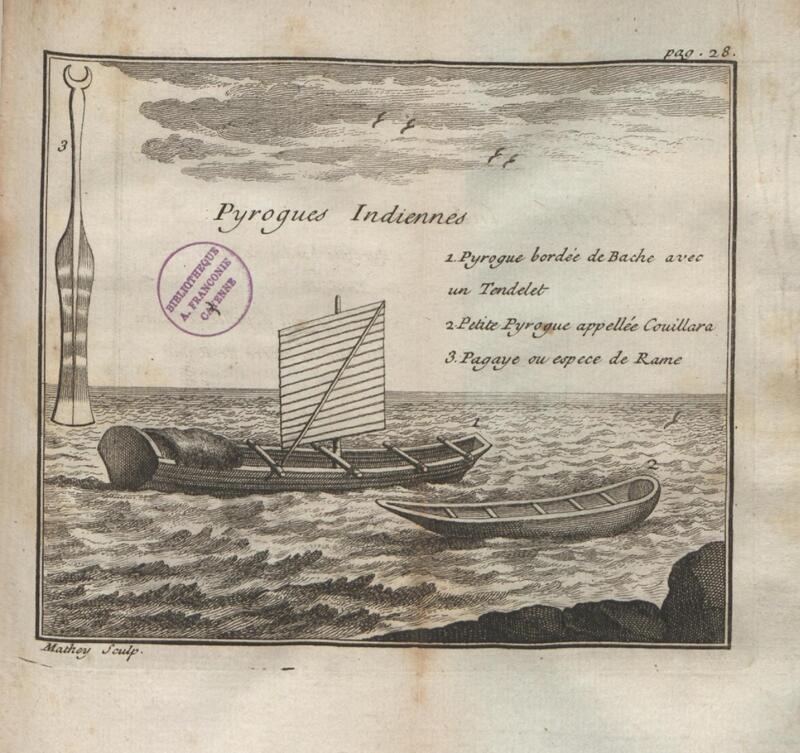 pag. 28.
3
Pyrogues Indiennes
1. Pyrogue bordée de Bache avec
un Tendelet
2. Petite Pyrogue appellée Couillara
3. Pagaye ou espece de Rame
BIBLIOTHÈQUE
A. FRANCONIE
CAYENNE
1
2
Mathey Sculp.